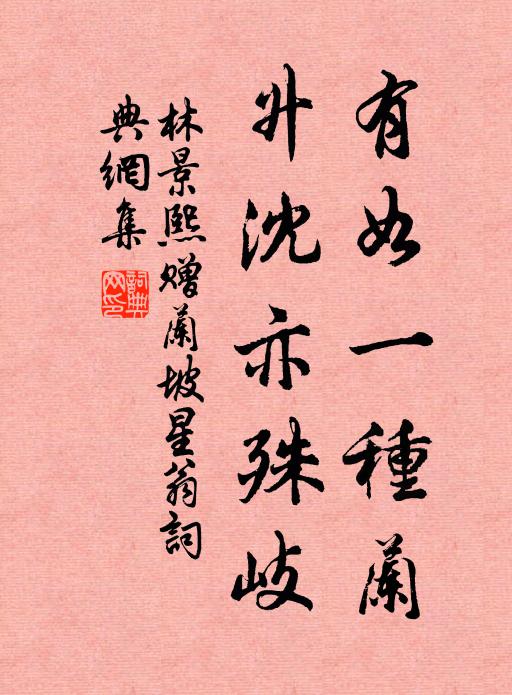 有如一種蘭
升沈亦殊歧
林景熙贈蘭坡星翁詞
典網集
詞典網印